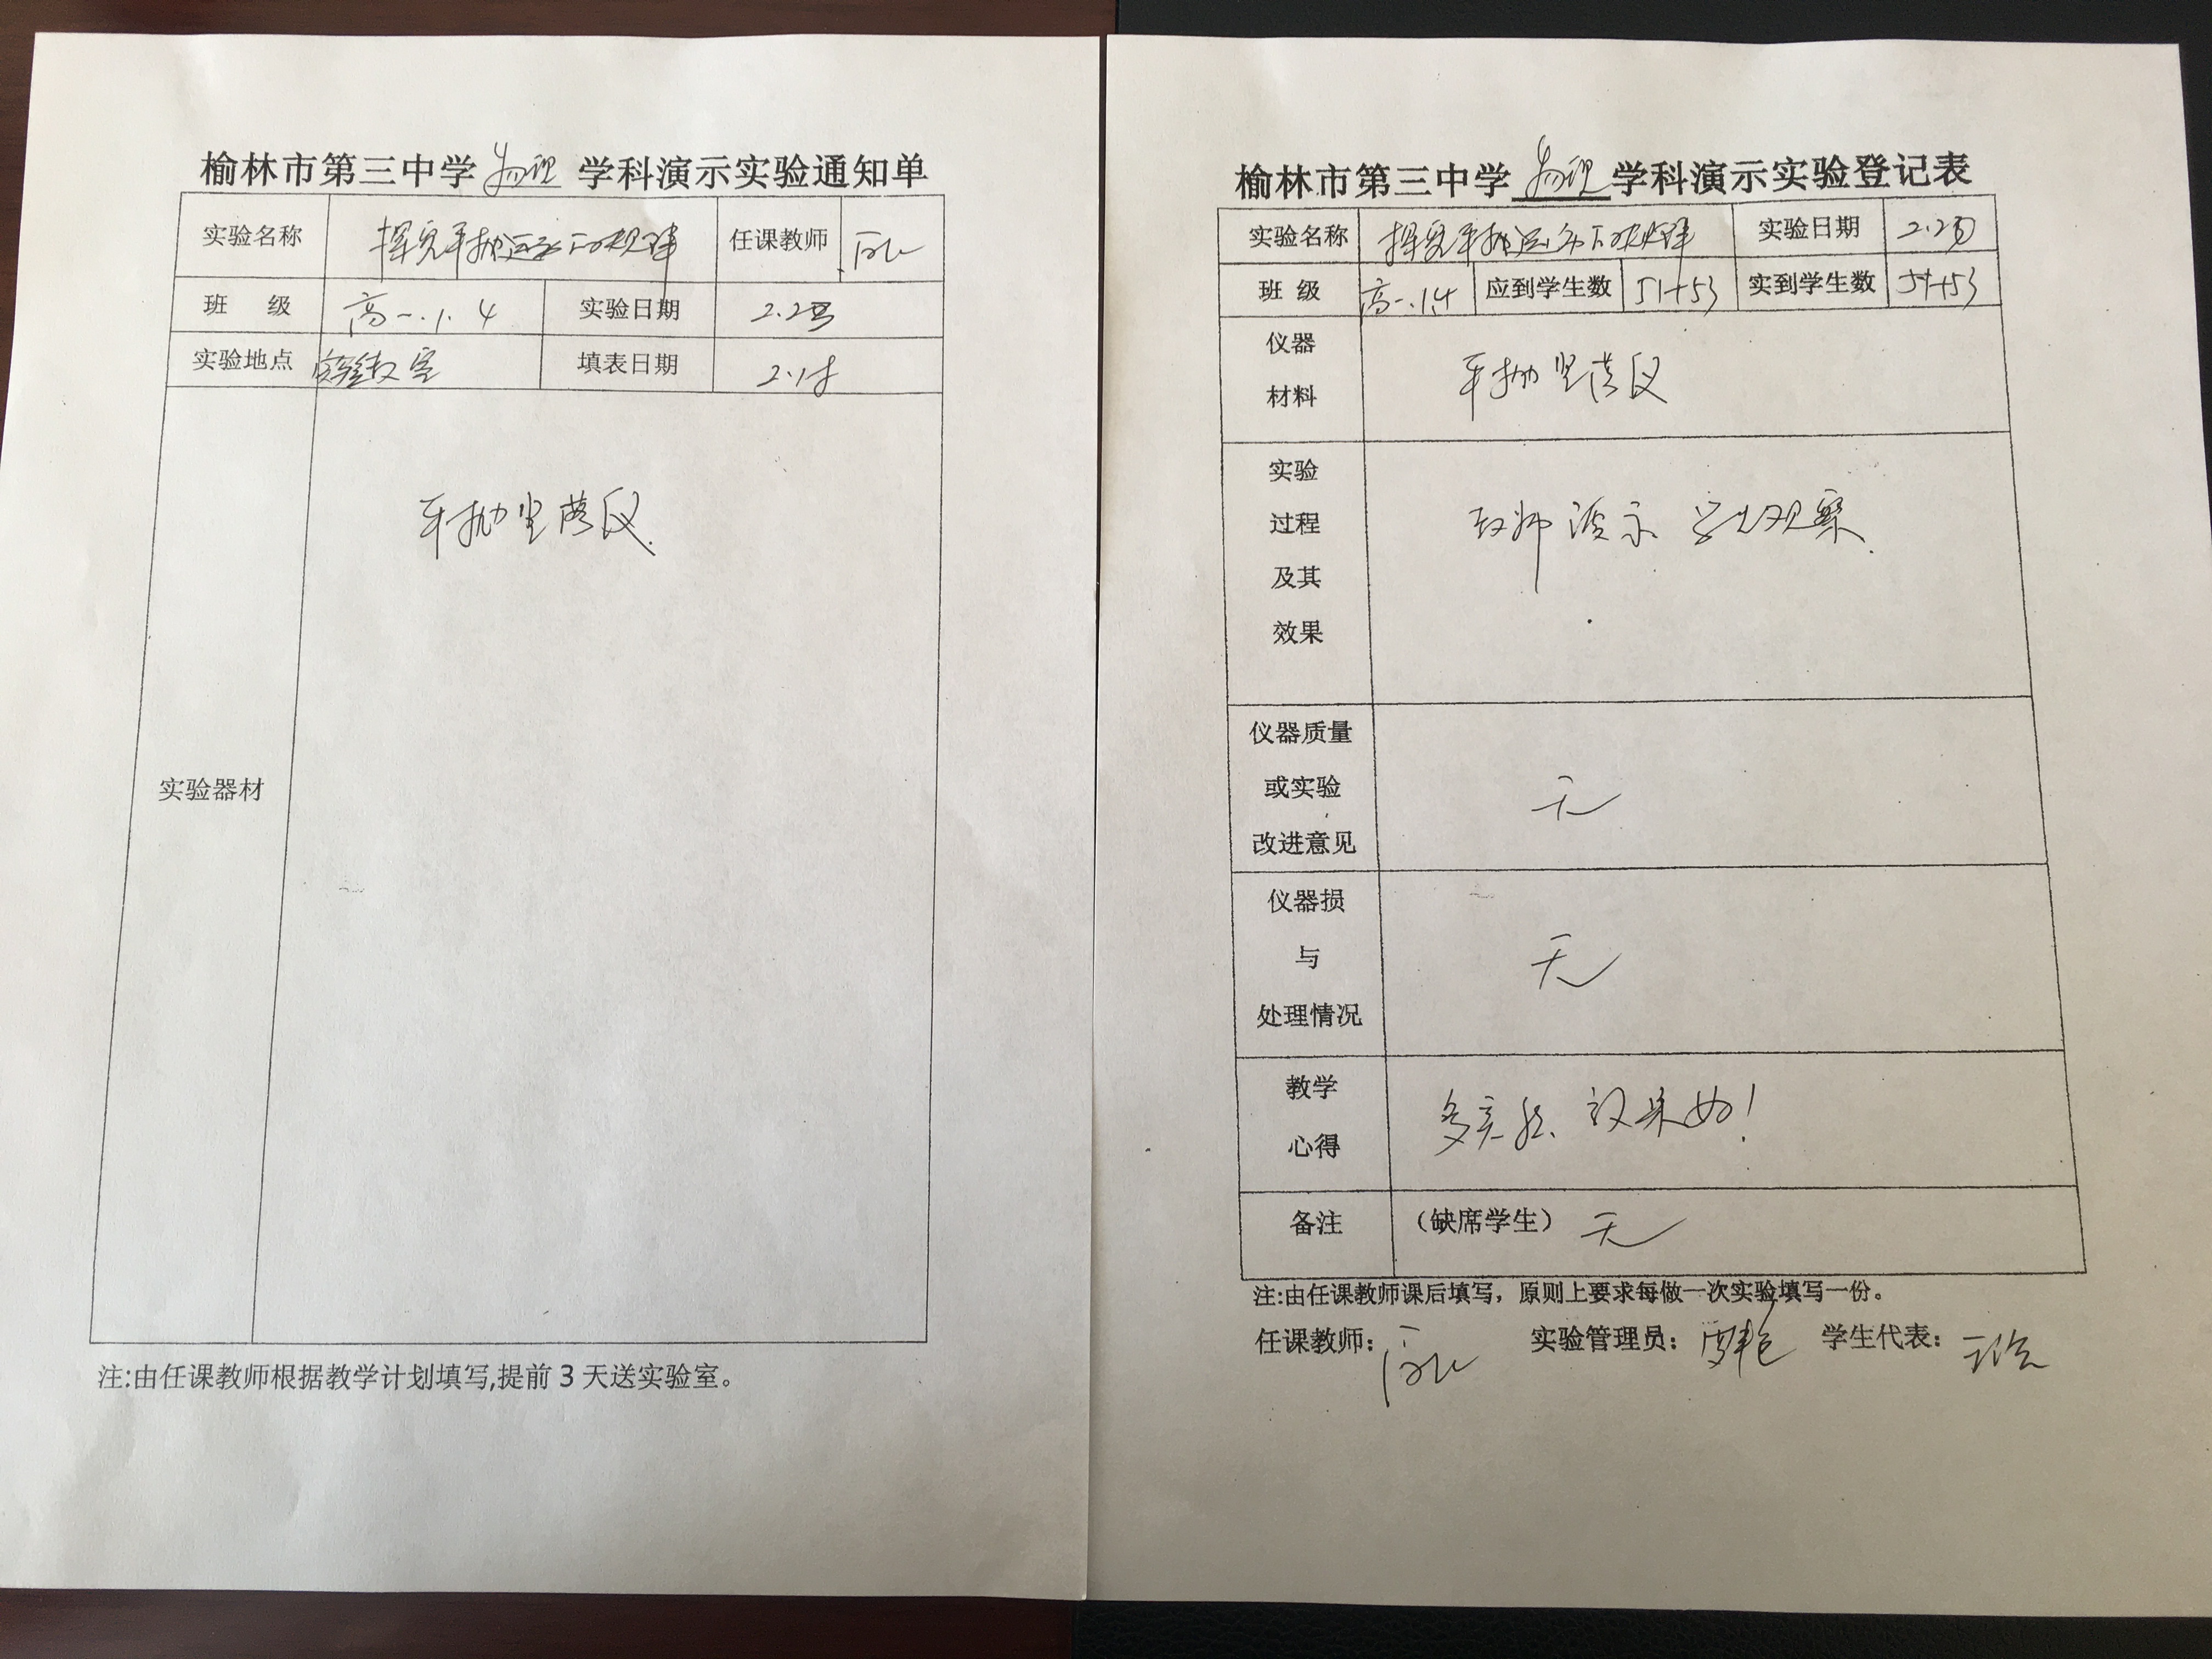 榆林市第三中学 物理 学科演示实验通知单
实验名称 探究平抛运动的规律 任课教师
班 级 高一.1.4 实验日期
实验地点 实验教室 填表日期
实验器材 平抛竖落仪.
注:由任课教师根据教学计划填写,提前3天送实验室。
榆林市第三中学 物理 学科演示实验登记表
实验名称 探究平抛运动的规律 实验日期
班 级 高一.1.4 应到学生数 51+53 实到学生数 51+53
仪器
材料
平抛竖落仪
实验
过程
及其
效果
教师演示 学生观察.
仪器质量
或实验
改进意见
无
仪器损
与
处理情况
无
教学
心得
多实验、效果好!
备注 (缺席学生) 无
注:由任课教师课后填写，原则上要求每做一次实验填写一份。
任课教师: 实验管理员: 学生代表: